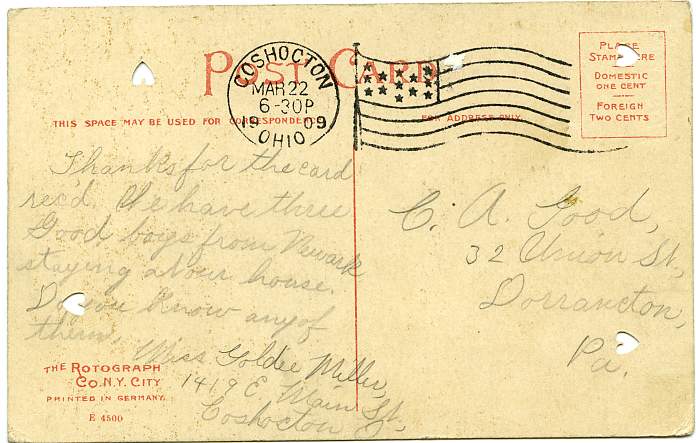 POST CARD
COSHOCTON
MAR 22
6-30P
1909
OHIO
PLACE
STAMP HERE
DOMESTIC
ONE CENT
FOREIGN
TWO CENTS
THIS SPACE MAY BE USED FOR CORRESPONDENCE
FOR ADDRESS ONLY.
Thanks for the card
rec'd. We have three
Good boys from Newark
staying at our house.
Do you know any of
them.
Miss Goldie Miller,
1419 E. Main St,
Coshocton O
C. A. Good,
32 Union St,
Dorrancton,
Pa.
THE ROTOGRAPH
CO. N.Y. CITY
PRINTED IN GERMANY.
E 4500